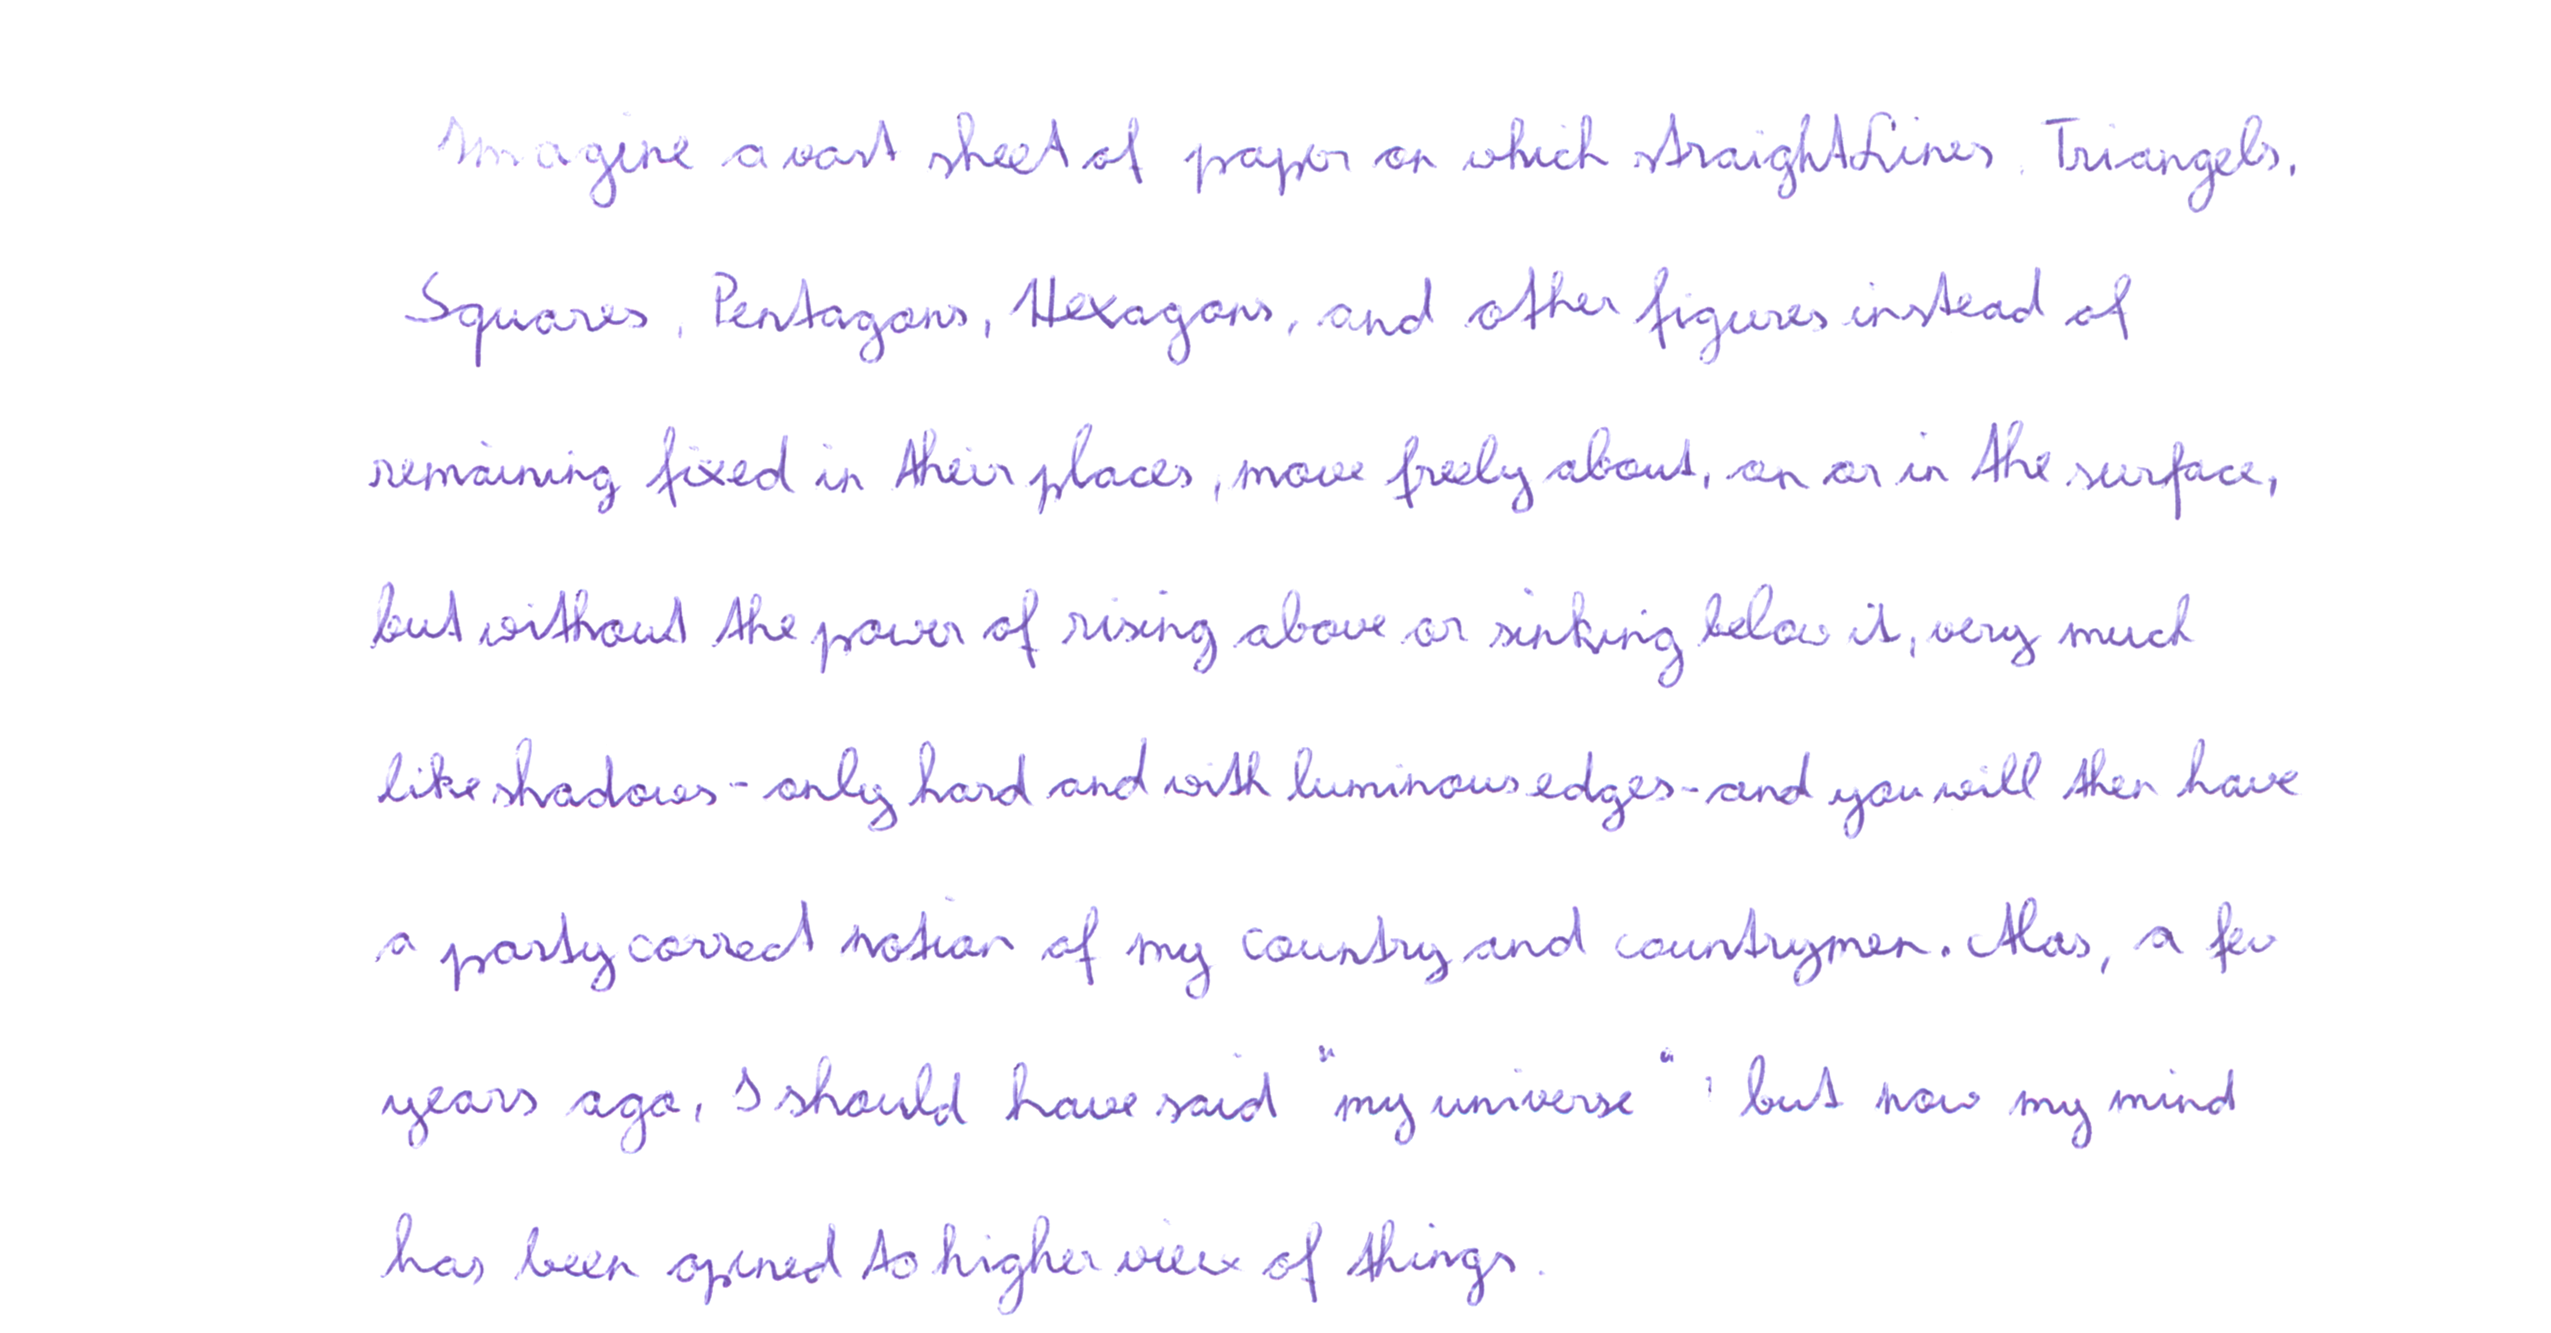 Imagine a vast sheet of paper on which straight Lines, Triangels,
Squares, Pentagons, Hexagons, and other figures instead of
remaining fixed in their places, move freely about, on or in the surface,
but without the power of rising above or sinking below it, very much
like shadows - only hard and with luminous edges - and you will then have
a party correct notion of my country and countrymen. Alas, a few
years ago, I should have said "my universe" ; but now my mind
has been opened to higher view of things.